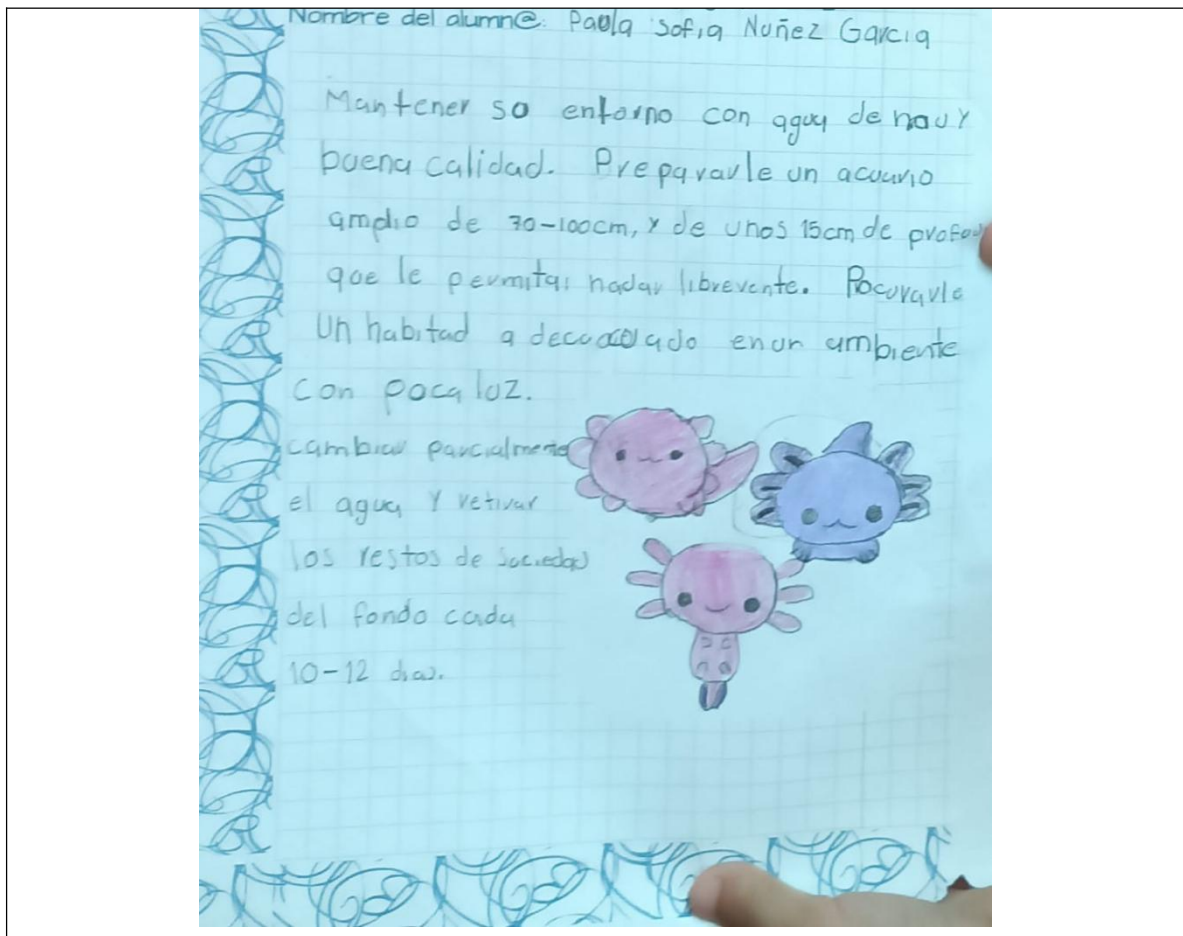 Nombre del alumn@: Paola Sofia Nuñez Garcia
Mantener so entorno con agua de
buena calidad. Prepararle un acuario
amplio de 70-100cm, y de unos 15cm de
que le permita nadar librevente. Procurarle
Un habitad a decuado en un ambiente
con poca luz.
cambiar parcialmente
el agua y retirar
los restos de suciedad
del fondo cada
10-12 dias.